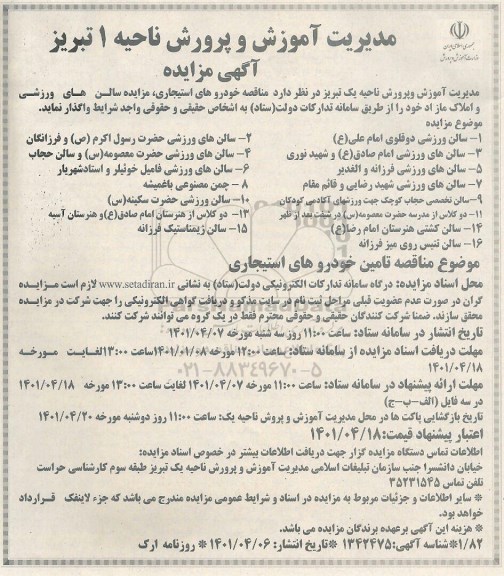 مدیریت آموزش و پرورش ناحیه ۱ تبریز
آگهی مزایده
مدیریت آموزش وپرورش ناحیه یک تبریز در نظر دارد مناقصه خودرو های استیجاری، مزایده سالن های ورزشی
و املاک ماز اد خود را از طریق سامانه تدارکات دولت(ستاد) به اشخاص حقیقی و حقوقی واجد شرایط واگذار نماید.
موضوع مزایده
۱- سالن ورزشی دوقلوی امام علی(ع)
۲- سالن های ورزشی حضرت رسول اکرم (ص) و فرزانگان
۳- سالن های ورزشی امام صادق(ع) و شهید نوری
۴- سالن های ورزشی حضرت معصومه(س) و سالن حجاب
۵- سالن های ورزشی فرزانه و الغدیر
۶- سالن های ورزشی فامیل خوئیلر و استادشهریار
۷- سالن های ورزشی شهید رضایی و قائم مقام
۸- چمن مصنوعی باغمیشه
۹- سالن تخصصی حجاب کوچک جهت ورزشهای آکادمی کودکان
۱۰- سالن ورزشی حضرت سکینه(س)
۱۱- دو کلاس از مدرسه حضرت معصومه(س) در شیفت بعد از ظهر
۱۳- دو کلاس از هنرستان امام صادق(ع)و هنرستان آسیه
۱۴- سالن کشتی هنرستان امام رضا(ع)
۱۵- سالن ژیمناستیک فرزانه
۱۶- سالن تنیس روی میز فرزانه
موضوع مناقصه تامین خودرو های استیجاری
محل اسناد مزایده: درگاه سامانه تدارکات الکترونیکی دولت(ستاد) به نشانی www.setadiran.ir لازم است مزایده
گران در صورت عدم عضویت قبلی مراحل ثبت نام در سایت مذکور و دریافت گواهی الکترونیکی را جهت شرکت در مزایده
محقق سازند. ضمنا شرکت کنندگان حقیقی و حقوقی محترم فقط در یک گروه می توانند شرکت کنند.
تاریخ انتشار در سامانه ستاد: ساعت ۱۱:۰۰ روز سه شنبه مورخه ۱۴۰۱/۰۴/۰۷
مهلت دریافت اسناد مزایده از سامانه ستاد: ساعت ۱۲:۰۰ مورخه ۱۴۰۱/۰۱/۰۸ساعت ۱۳:۰۰لغایت مورخه
۱۴۰۱/۰۴/۱۸
مهلت ارائه پیشنهاد در سامانه ستاد: ساعت ۱۱:۰۰ مورخه ۱۴۰۱/۰۴/۰۷ لغایت ساعت ۱۳:۰۰ مورخه ۱۴۰۱/۰۴/۱۸
در سه فایل (الف-ب-ج)
تاریخ بازگشایی پاکت ها در محل مدیریت آموزش و پروش ناحیه یک: ساعت ۱۱:۰۰ روز دوشنبه مورخه ۱۴۰۱/۰۴/۲۰
اعتبار پیشنهاد قیمت: ۱۴۰۱/۰۴/۱۸
اطلاعات تماس دستگاه مزایده گزار جهت دریافت اطلاعات بیشتر در خصوص اسناد مزایده:
خیابان دانشسرا جنب سازمان تبلیغات اسلامی مدیریت آموزش و پرورش ناحیه یک تبریز طبقه سوم کارشناسی حراست
تلفن تماس ۳۵۲۳۱۵۴۵
* سایر اطلاعات و جزئیات مربوط به مزایده در اسناد و شرایط عمومی مزایده مندرج می باشد که جزء لاینفک قرارداد
خواهد بود.
* هزینه این آگهی برعهده برندگان مزایده می باشد.
۱/۸۲*شناسه آگهی: ۱۳۴۲۴۷۵ *تاریخ انتشار: ۱۴۰۱/۰۴/۰۶ * روزنامه ارک
۰۲۱-۸۸۳۴۹۶۷۰-۵